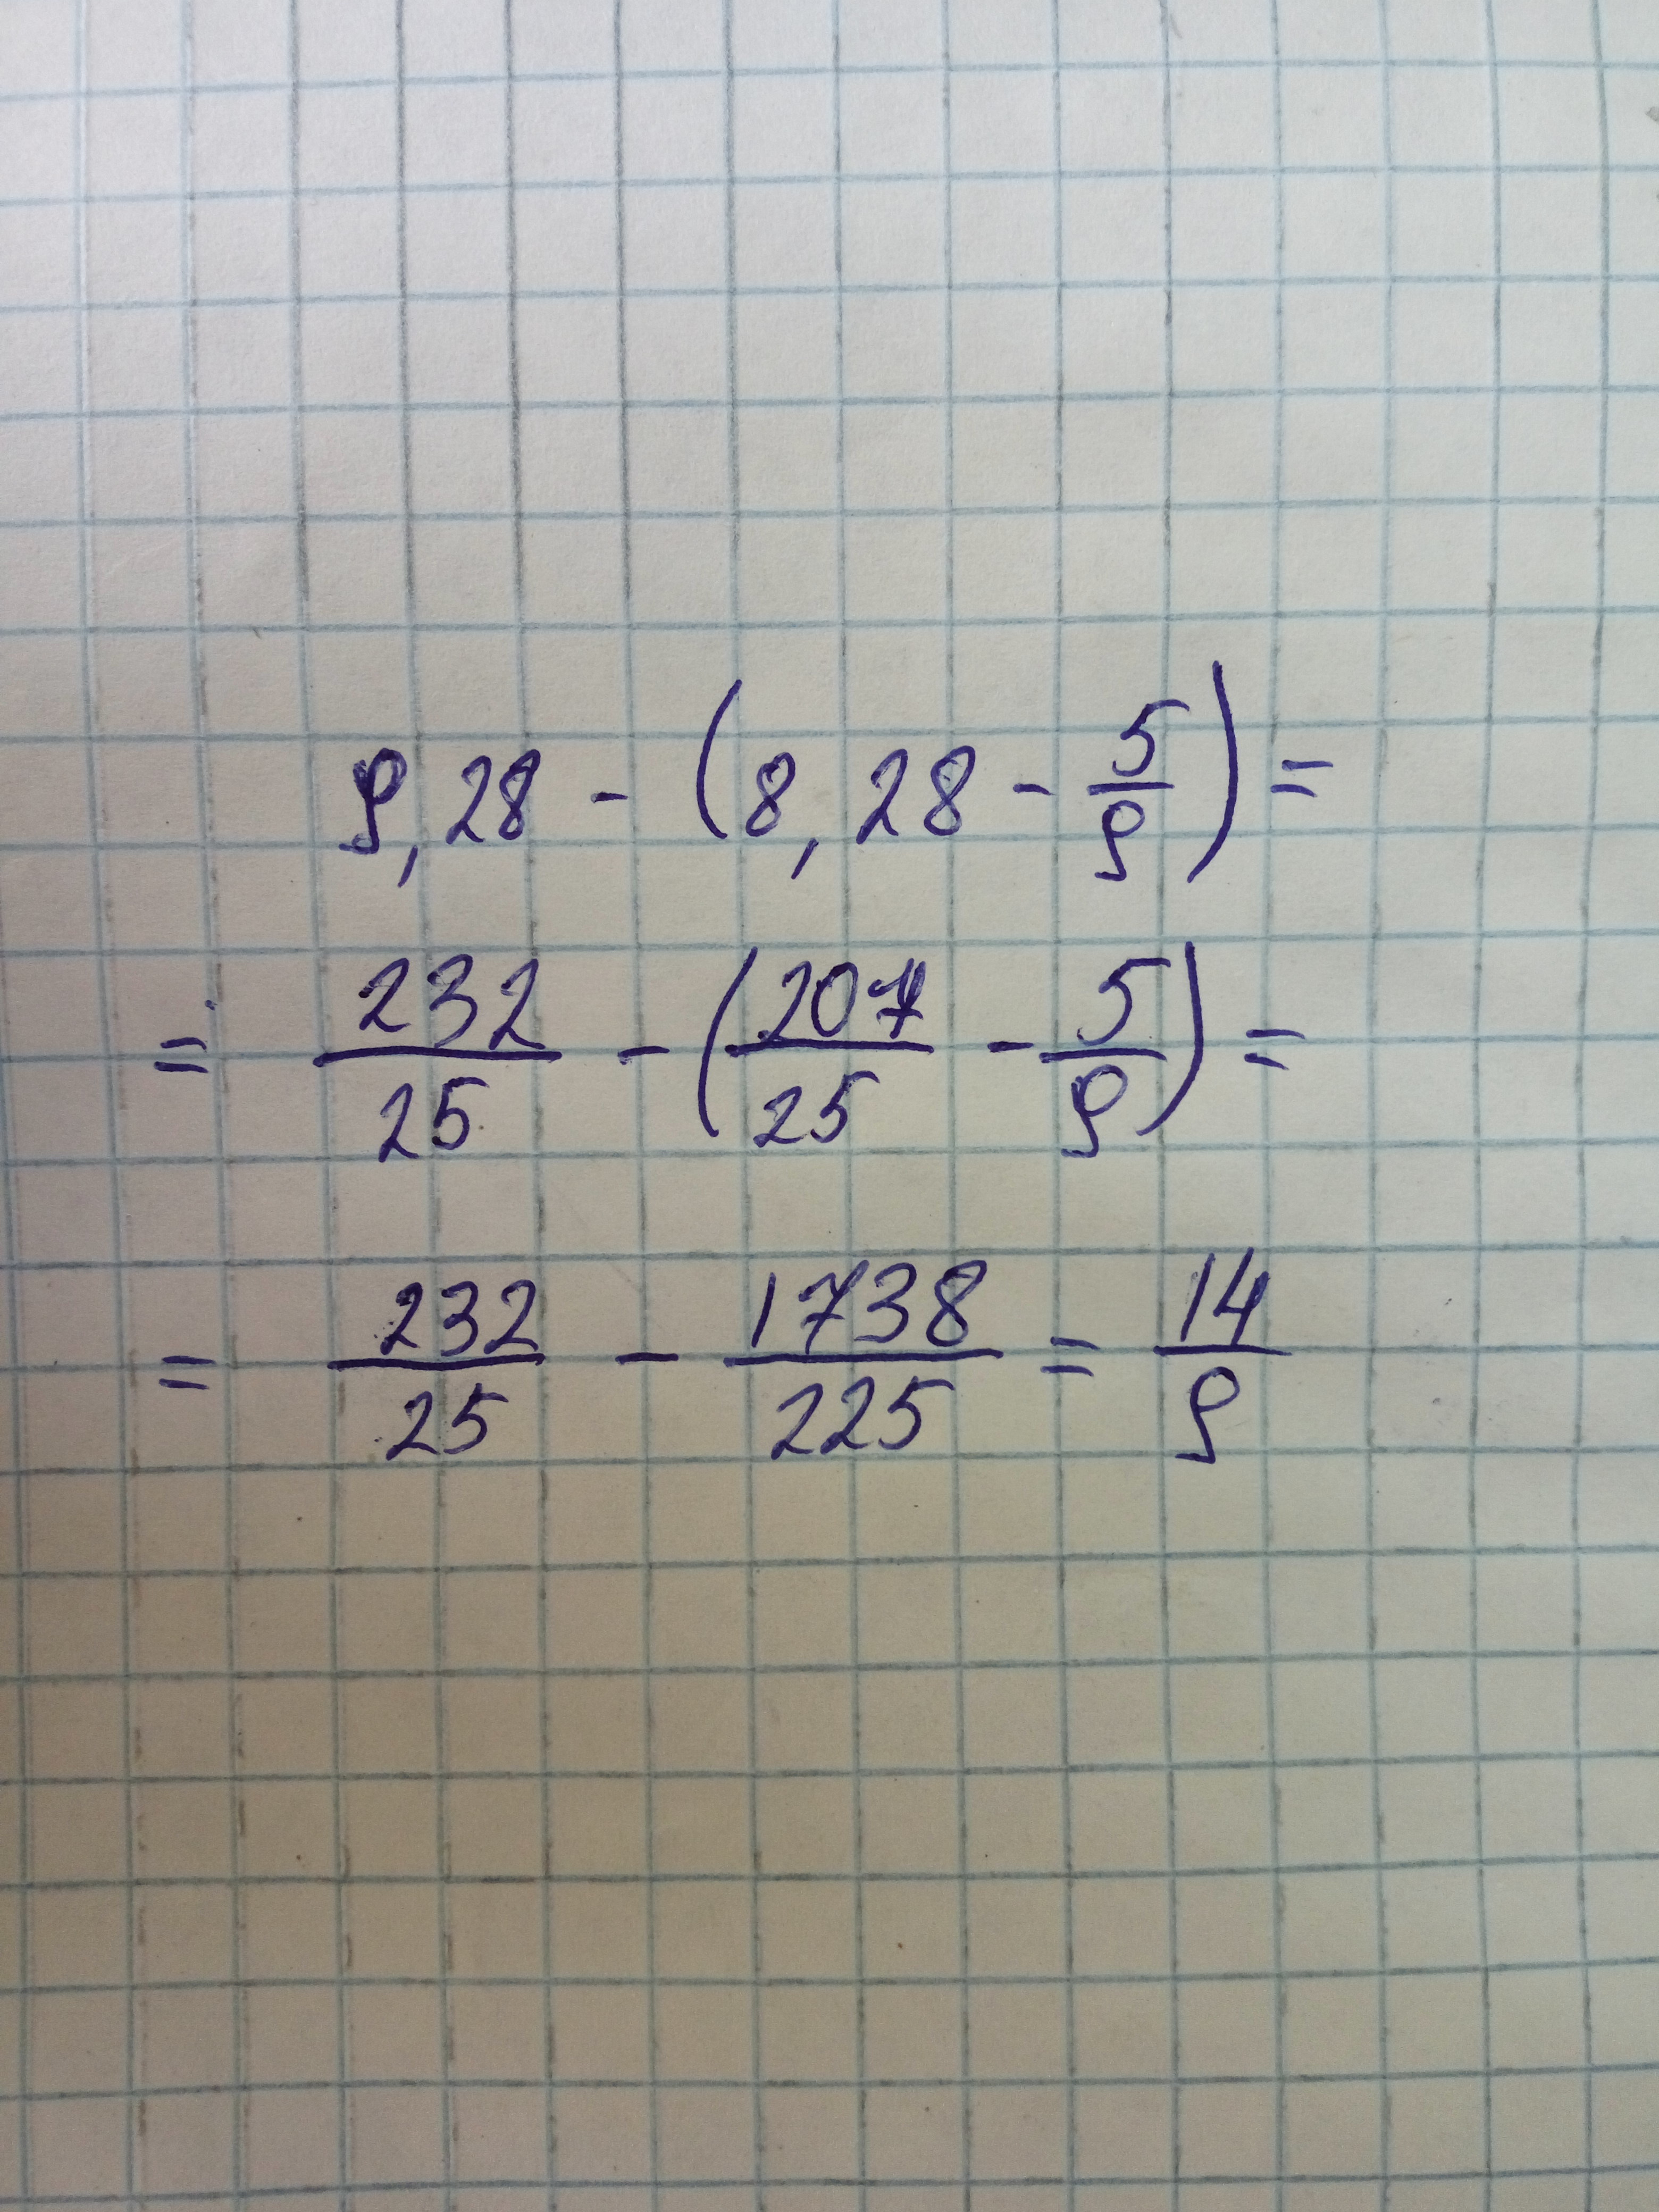 9,28 - (8,28 - 5/9) =
= 232/25 - (207/25 - 5/9) =
= 232/25 - 1738/225 = 14/9